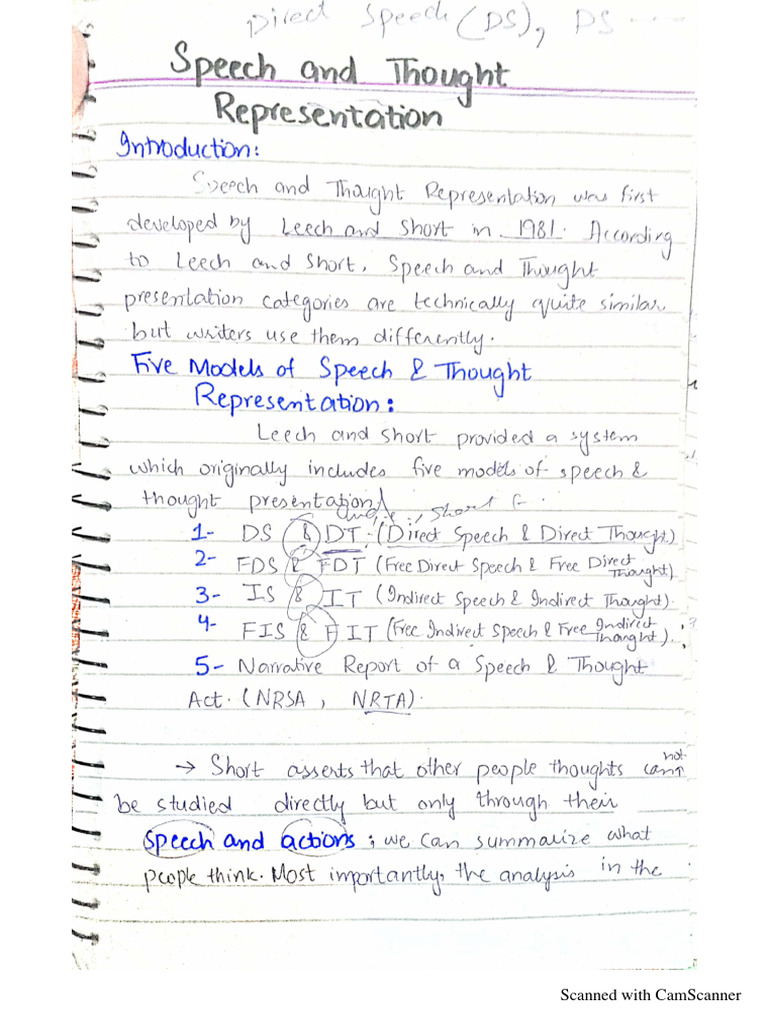 Direct Speech (DS), DS ....
Speech and Thought
Representation
Introduction:
Speech and Thought Representation was first
developed by Leech and Short in 1981. According
to Leech and Short, Speech and Thought
presentation categories are technically quite similar
but writers use them differently.
Five Models of Speech & Thought
Representation:
Leech and Short provided a system
which originally includes five models of speech &
thought presentation
Short
1- DS & DT (Direct Speech & Direct Thought)
2- FDS & FDT (Free Direct Speech & Free Direct Thought)
3- IS & IT (Indirect Speech & Indirect Thought).
4- FIS & FIT (Free Indirect Speech & Free Indirect Thought).
5- Narrative Report of a Speech & Thought
Act. (NRSA, NRTA).
→ Short asserts that other people thoughts can not
be studied directly but only through their
speech and actions; we can summarize what
people think. Most importantly, the analysis in the
Scanned with CamScanner